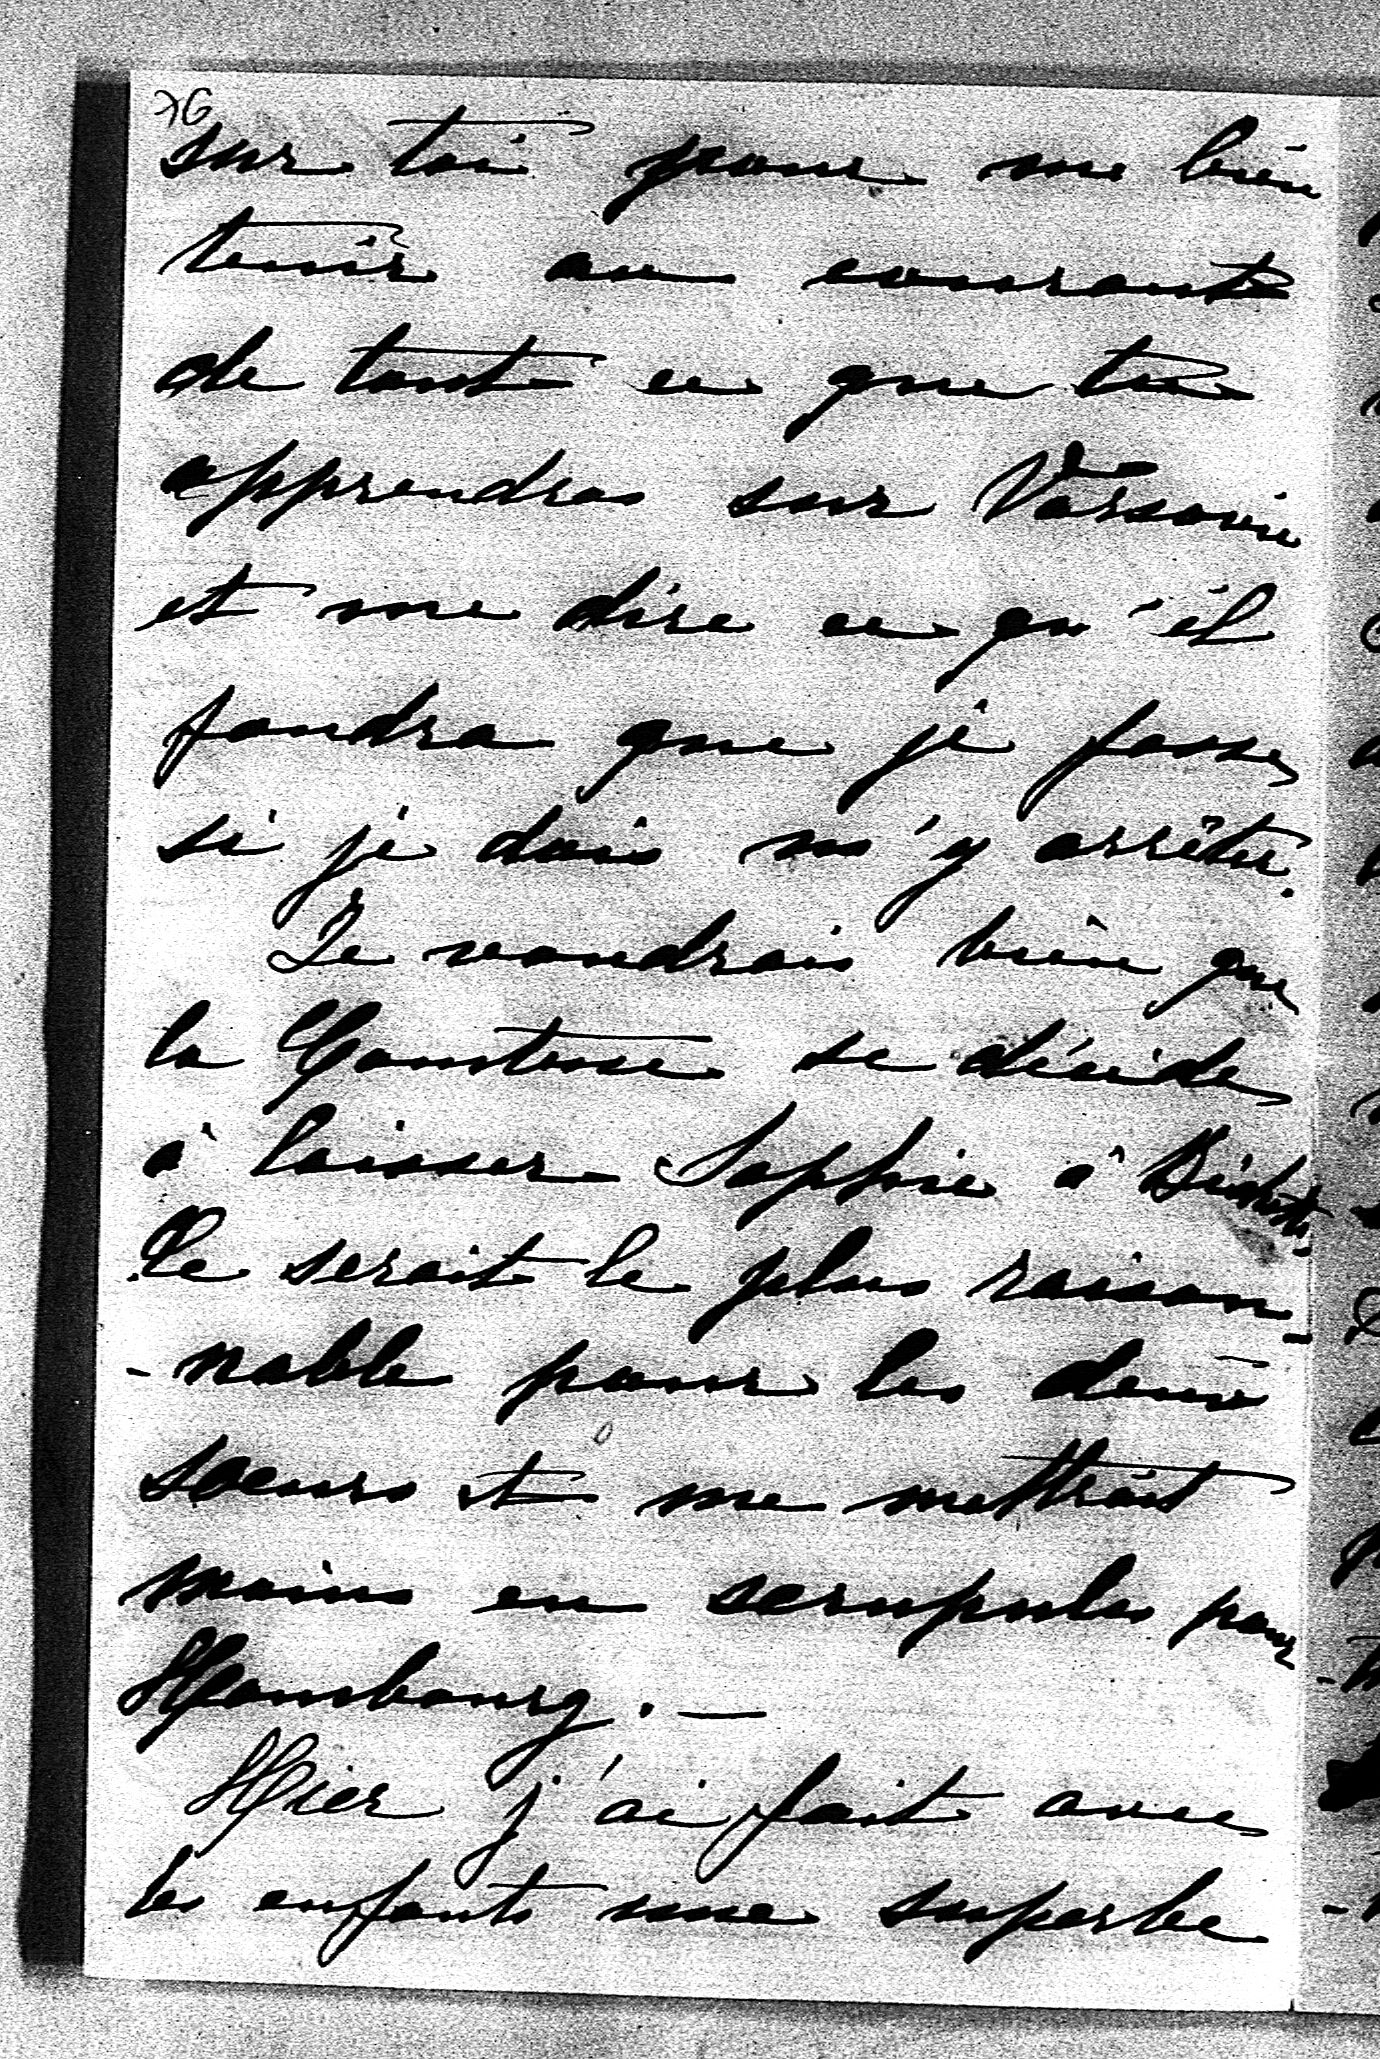 76
sur toi pour me bien
tenir au courant
de tout ce que tu
apprendras sur Varsovie
et me dire ce qu'il
faudra que je fasse,
si je dois m'y arrêter.
Je voudrais bien que
la Comtesse se décide
à laisser Sophie à
Ce serait le plus raison-
-nable pour les deux
soeurs et me mettrait
moins en scrupules pour
Hombourg. —
Hier j'ai fait avec
les enfants une superbe